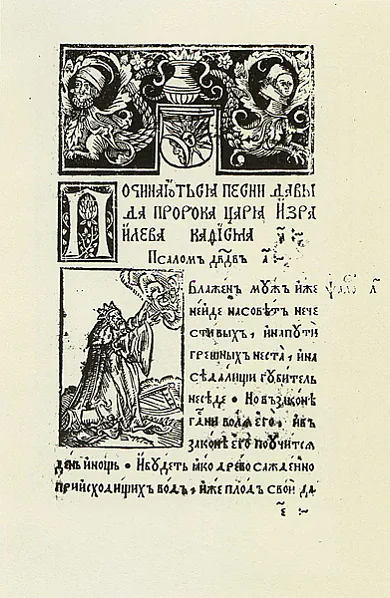 Починаютьсꙗ песни Давы
да пророка царꙗ Изра
илева кафисма а҃
Псаломъ дв҃дъ а҃
Блаженъ мужъ иже
неиде насоветъ нече
стивыхъ, инапути
грешныхъ неста, ина
седалищи губитель
неседе • Новъзаконе
гн҃и волꙗ его, ивъ
законе его поучитсꙗ
день инощь • Ибудеть ꙗко древо саждейно
приисходищихъ водъ, иже плодъ свои да